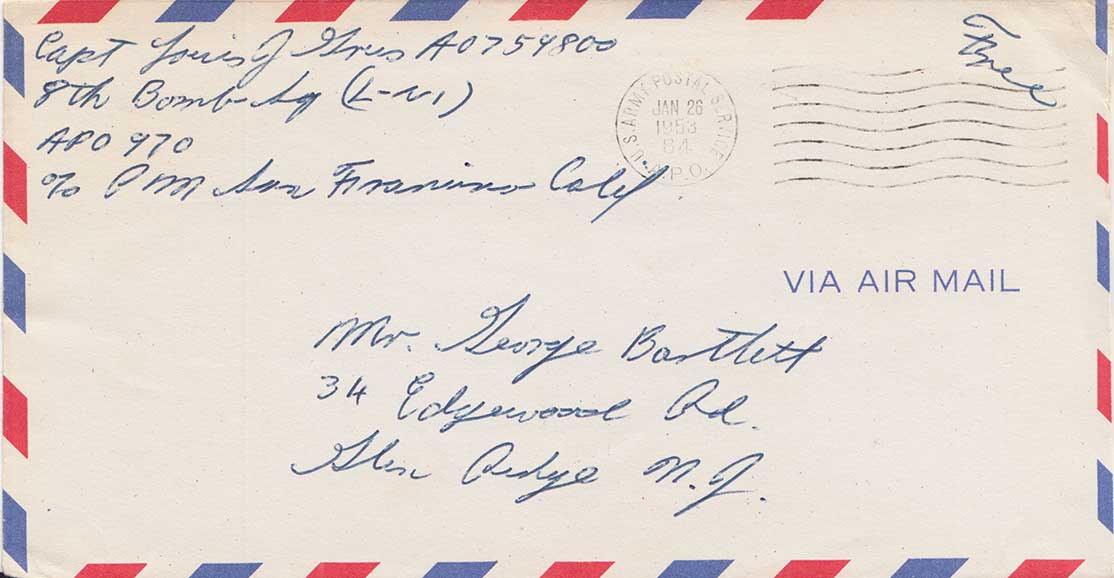 Capt Louis J AO759800
8th Bomb Sq (L-NI)
APO 970
c/o P M San Francisco Calif
Free
U.S. ARMY POSTAL SERVICE
JAN 26
1953
84
A.P.O.
VIA AIR MAIL
Mr. George Bartlett
34 Edgewood Rd.
Glen Ridge N.J.